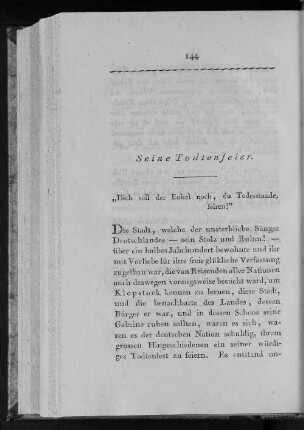 144
Seine Todtenfeier.
„Dich soll der Enkel noch, du Todesstunde,
feiren!“
Die Stadt, welche der unsterbliche Sänger
Deutschlandes — sein Stolz und Ruhm! —
über ein halbes Jahrhundert bewohnte und ihr
mit Vorliebe für ihre freie glückliche Verfassung
zugethan war, die van Reisenden aller Nationen
auch deswegen vorzugsweise besucht ward, um
Klopstock kennen zu lernen, diese Stadt,
und die benachbarte des Landes, dessen
Bürger er war, und in dessen Schoos seine
Gebeine ruhen sollten, waren es sich, wa-
ren es der deutschen Nation schuldig, ihrem
grossen Hingeschiedenen ein seiner würdi-
ges Todtenfest zu feiern. Es entstand un-